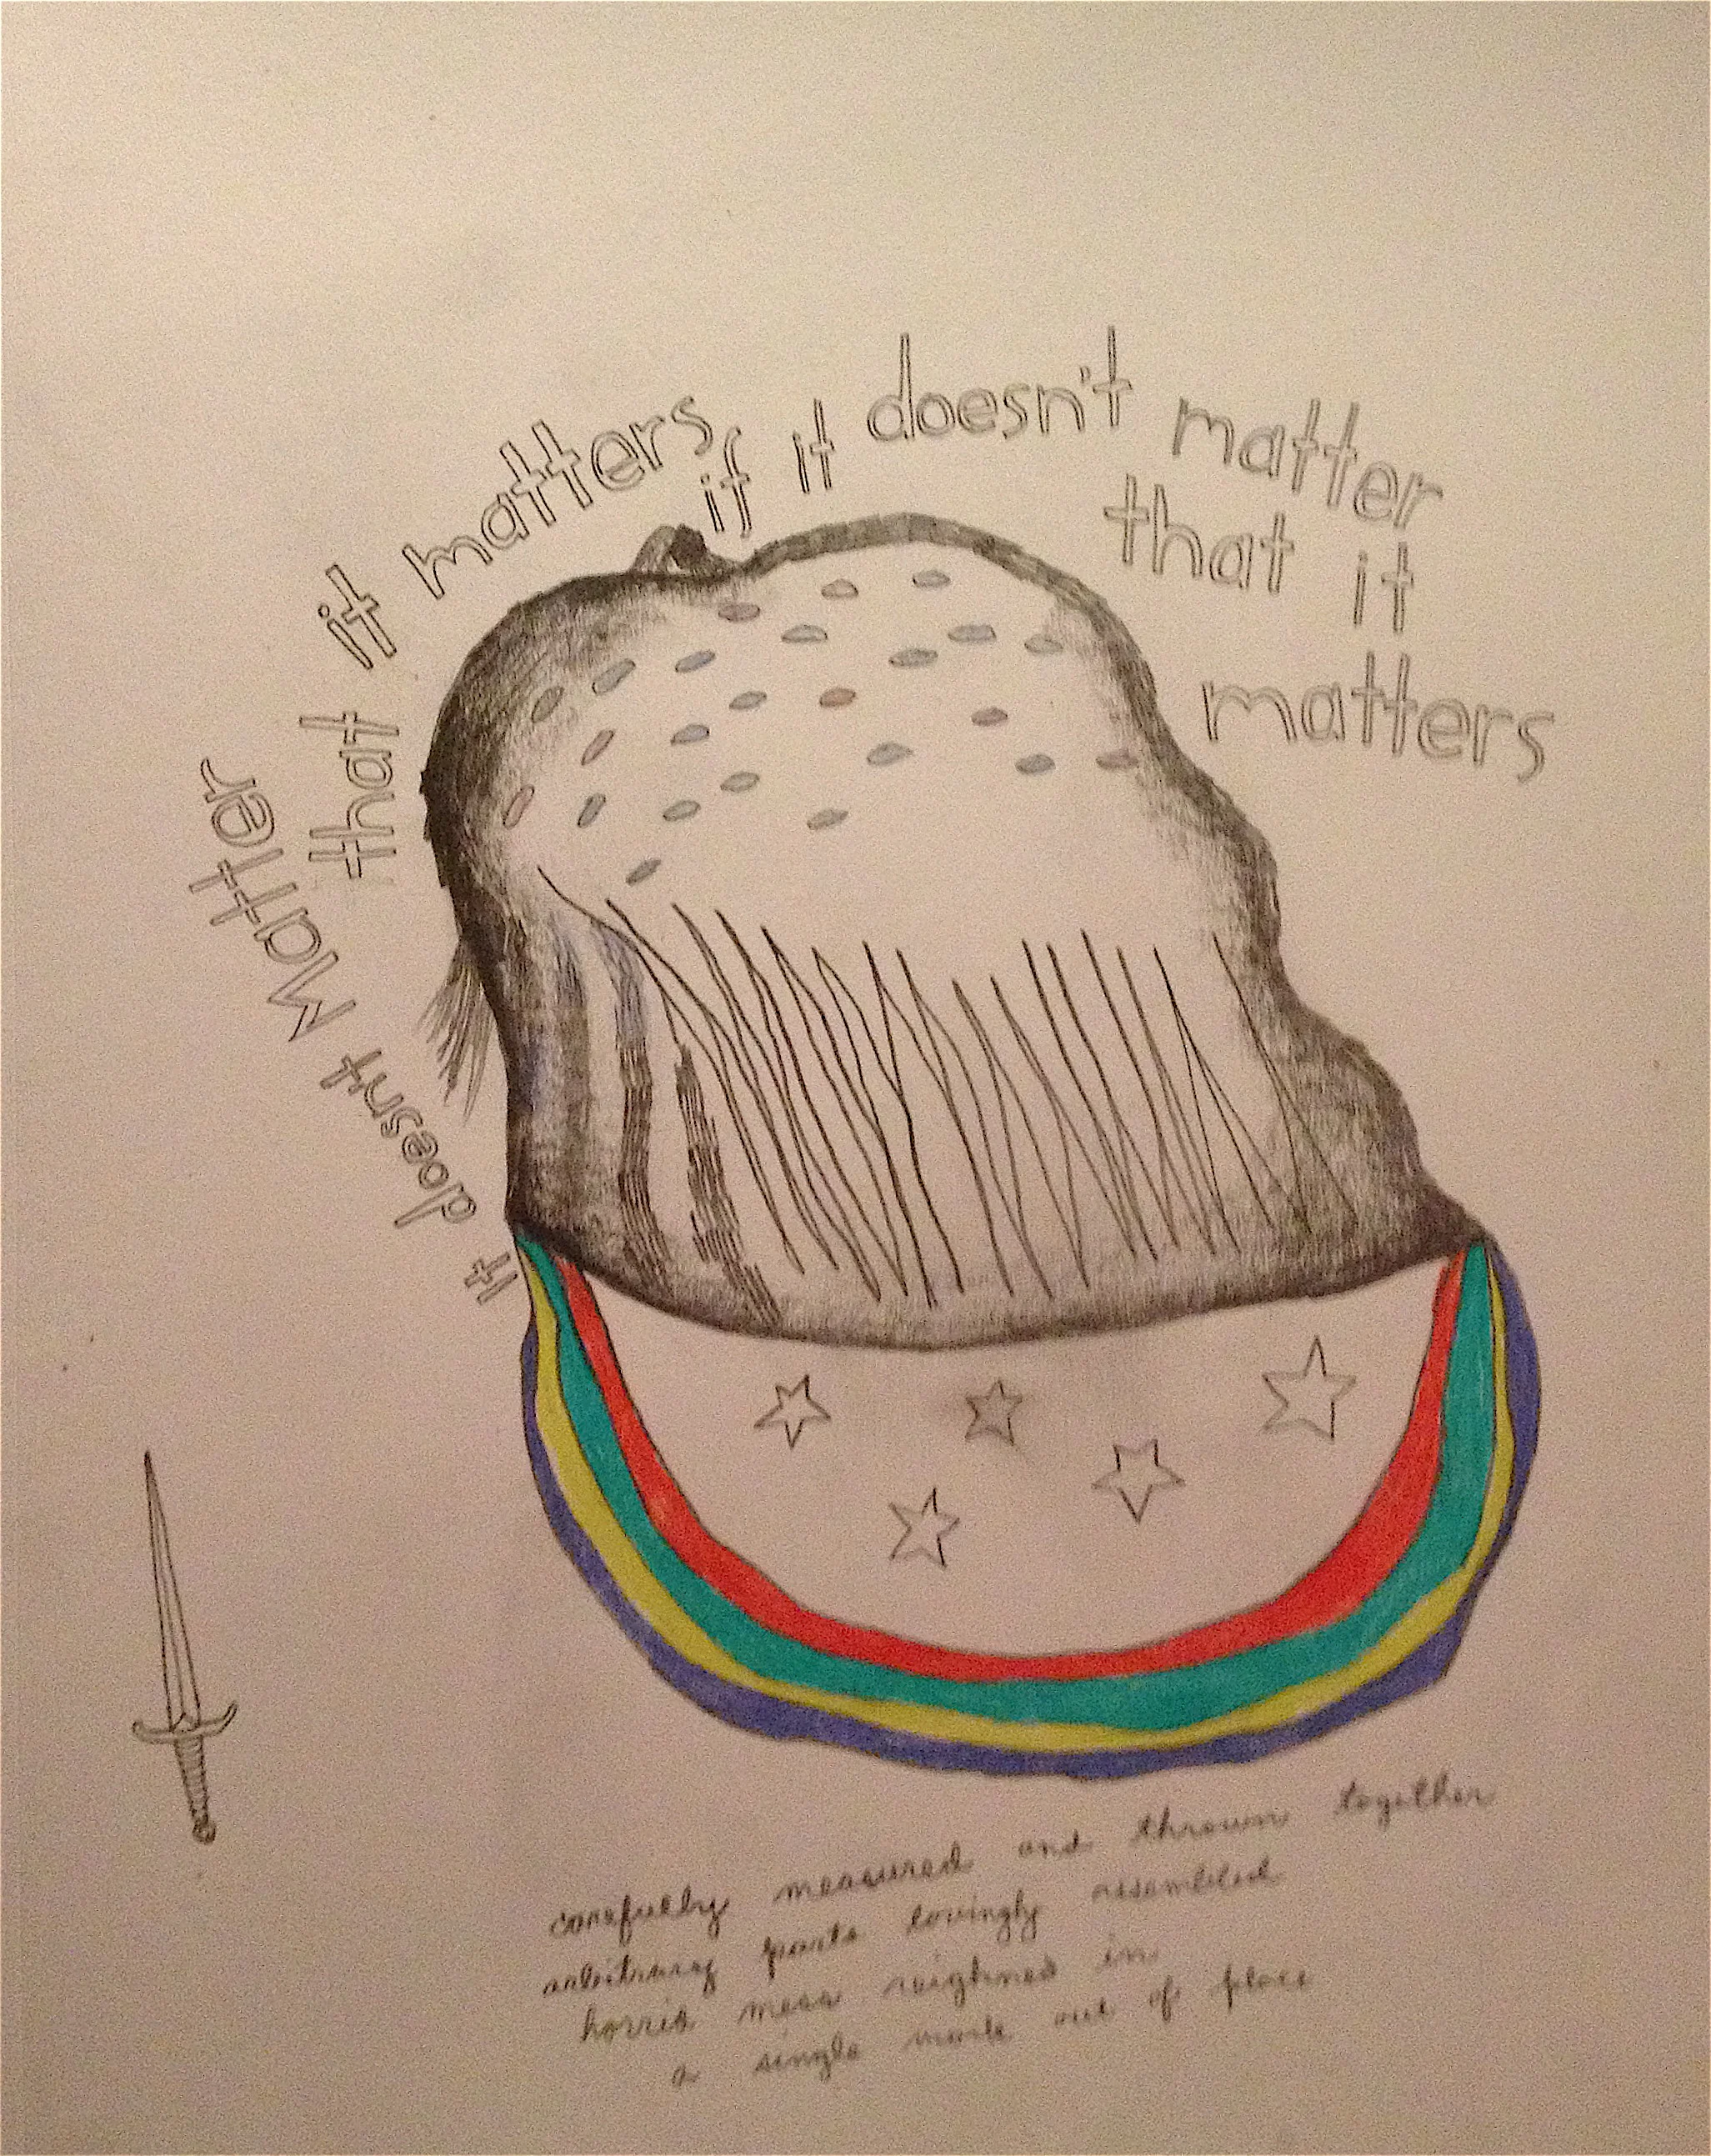 It doesnt Matter
that it matters
if it doesn't matter
that it
matters
carefully measured and thrown together
arbitrary parts lovingly assembled
horrid mess reighned in
a single mark out of place